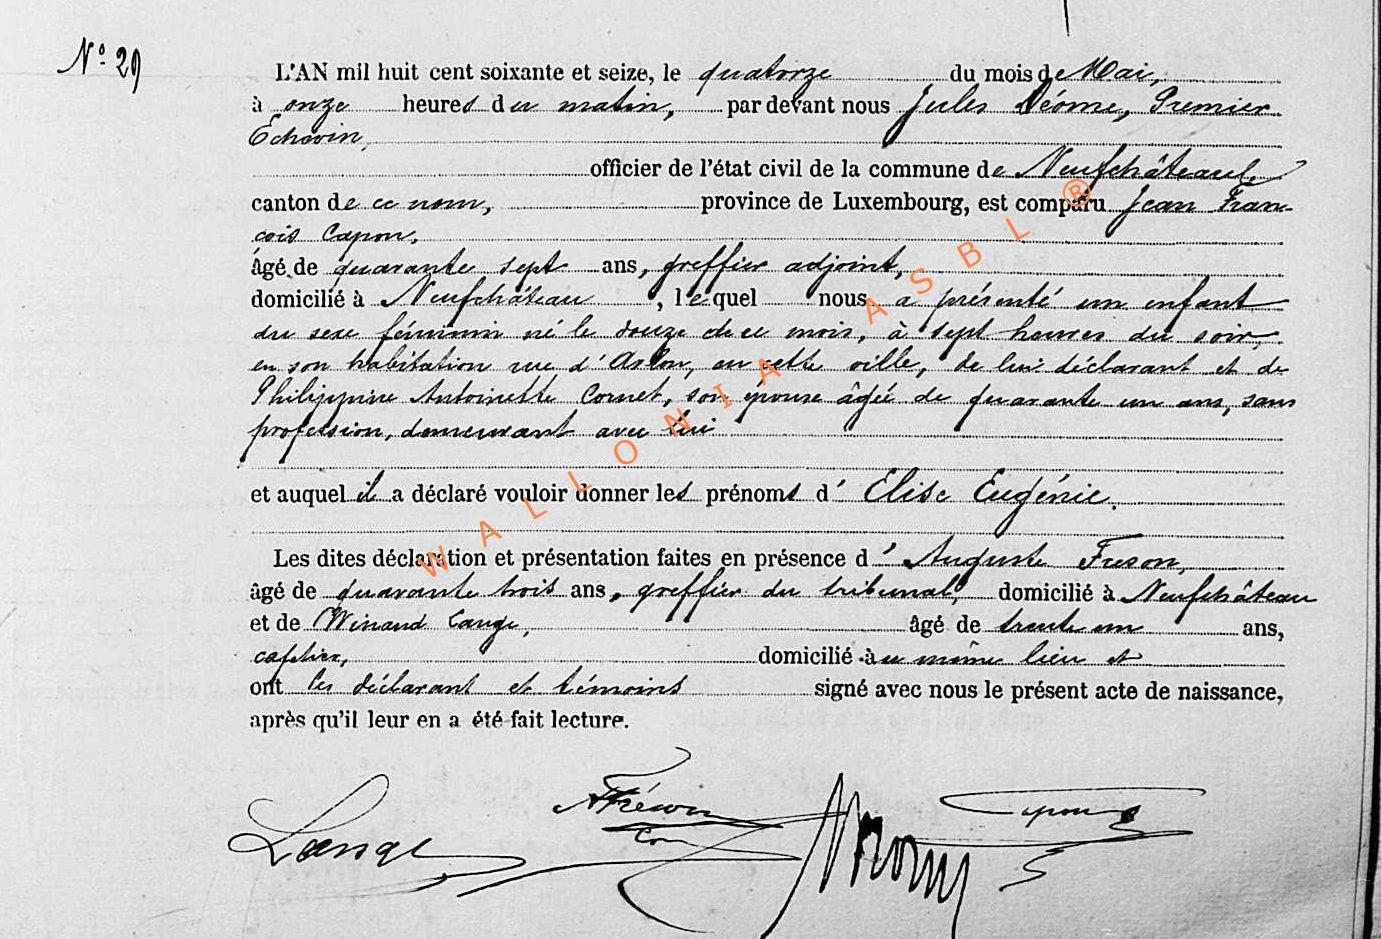 N° 29
L'AN mil huit cent soixante et seize, le quatorze du mois de Mai,
à onze heures du matin, par devant nous Jules Déome, Premier
Echevin,
officier de l'état civil de la commune de Neufchâteau,
canton de ce nom, province de Luxembourg, est comparu Jean Fran-
çois Capon,
âgé de quarante sept ans, greffier adjoint,
domicilié à Neufchâteau, lequel nous a présenté un enfant
du sexe féminin né le douze de ce mois, à sept heures du soir,
en son habitation rue d'Arlon, en cette ville, de lui déclarant et de
Philippine Antoinette Cornet, son épouse âgée de quarante un ans, sans
profession, demeurant avec lui
et auquel il a déclaré vouloir donner les prénoms d'Elise Eugénie.
Les dites déclaration et présentation faites en présence d'Auguste Freson,
âgé de quarante trois ans, greffier du tribunal, domicilié à Neufchâteau
et de Winand Lange, âgé de trente un ans,
cafetier, domicilié au même lieu et
ont les déclarant et témoins signé avec nous le présent acte de naissance,
après qu'il leur en a été fait lecture.
Lange AFréson Capon
WALLONIA ASBL ®